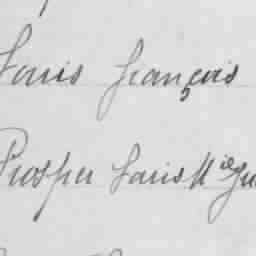 Louis françois
Prosper Louis M ie